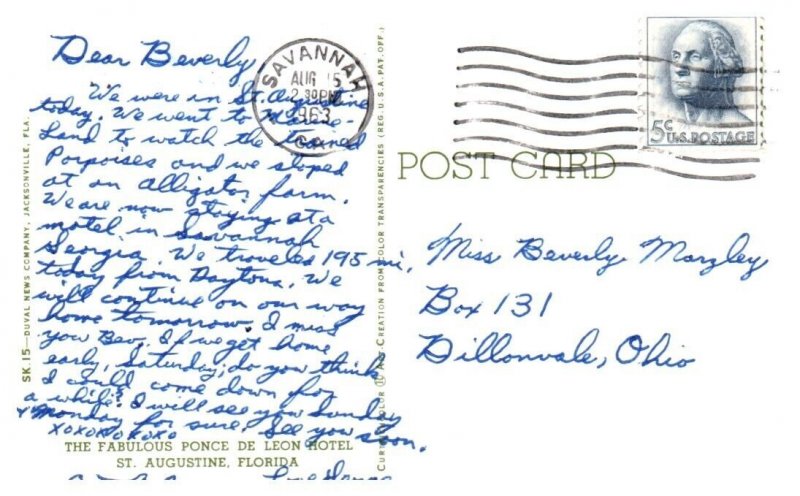 Dear Beverly,
We were in St. Augustine
today. We went to Marine-
Land to watch the trained
Porpoises and we stoped
at an alligator farm.
We are now staying at a
motel in Savannah
Georgia. We traveled 195 mi.
today from Daytona. We
will continue on our way
home tomorrow. I miss
you Bev. If we get home
early, Saturday, do you think
I could come down for
a while? I will see you Sunday
+ Monday for sure. See you soon.
xoxoxoxoxo
THE FABULOUS PONCE DE LEON HOTEL
ST. AUGUSTINE, FLORIDA
SK.15—DUVAL NEWS COMPANY, JACKSONVILLE, FLA.
CREATION FROM COLOR TRANSPARENCIES (REG. U.S.A. PAT. OFF.)
SAVANNAH
AUG 15
2:30 PM
1963
GA.
5¢
U.S. POSTAGE
POST CARD
Miss Beverly Manzley
Box 131
Dillonvale, Ohio